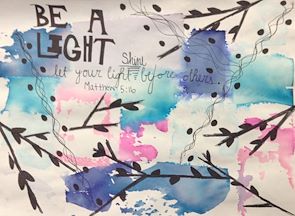 BE A
LIGHT
Shine
let your light before others.
Matthew 5:16